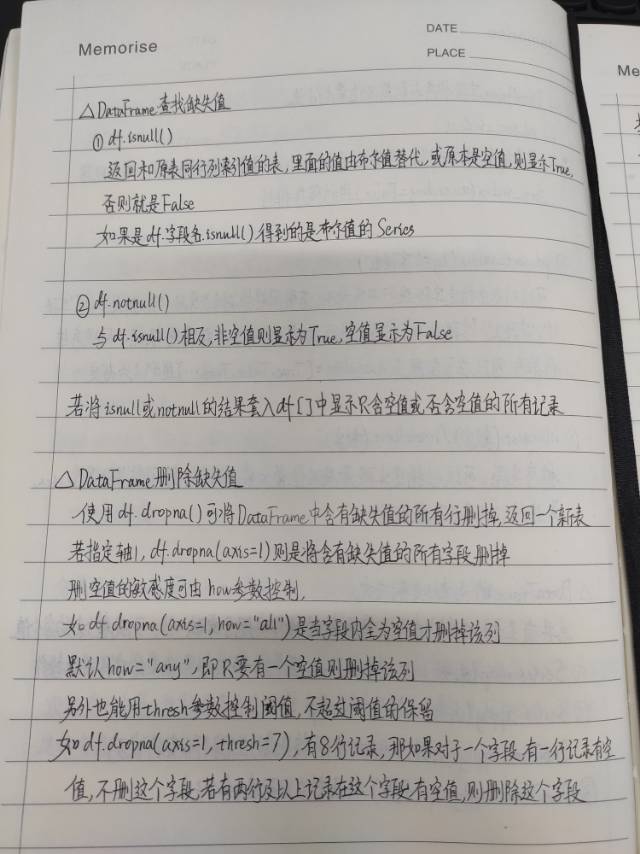 Memorise
DATE
PLACE
△DataFrame查找缺失值
① df.isnull()
返回和原表同行列索引值的表，里面的值由布尔值替代，或原本是空值，则显示True，
否则就是False
如果是df.字段名.isnull()得到的是布尔值的Series
② df.notnull()
与df.isnull()相反，非空值则显示为True，空值显示为False
若将isnull或notnull的结果套入df[]中显示只含空值或不含空值的所有记录
△DataFrame删除缺失值
使用df.dropna()可将DataFrame中含有缺失值的所有行删掉，返回一个新表
若指定轴1，df.dropna(axis=1)则是将含有缺失值的所有字段删掉
删空值的敏感度可由how参数控制，
如df.dropna(axis=1, how="all")是当字段内全为空值才删掉该列
默认how="any"，即只要有一个空值则删掉该列
另外也能用thresh参数控制阈值，不超过阈值的保留
如df.dropna(axis=1, thresh=7)，有8行记录，那如果对于一个字段，有一行记录有空
值，不删这个字段，若有两行及以上记录在这个字段有空值，则删除这个字段
Me